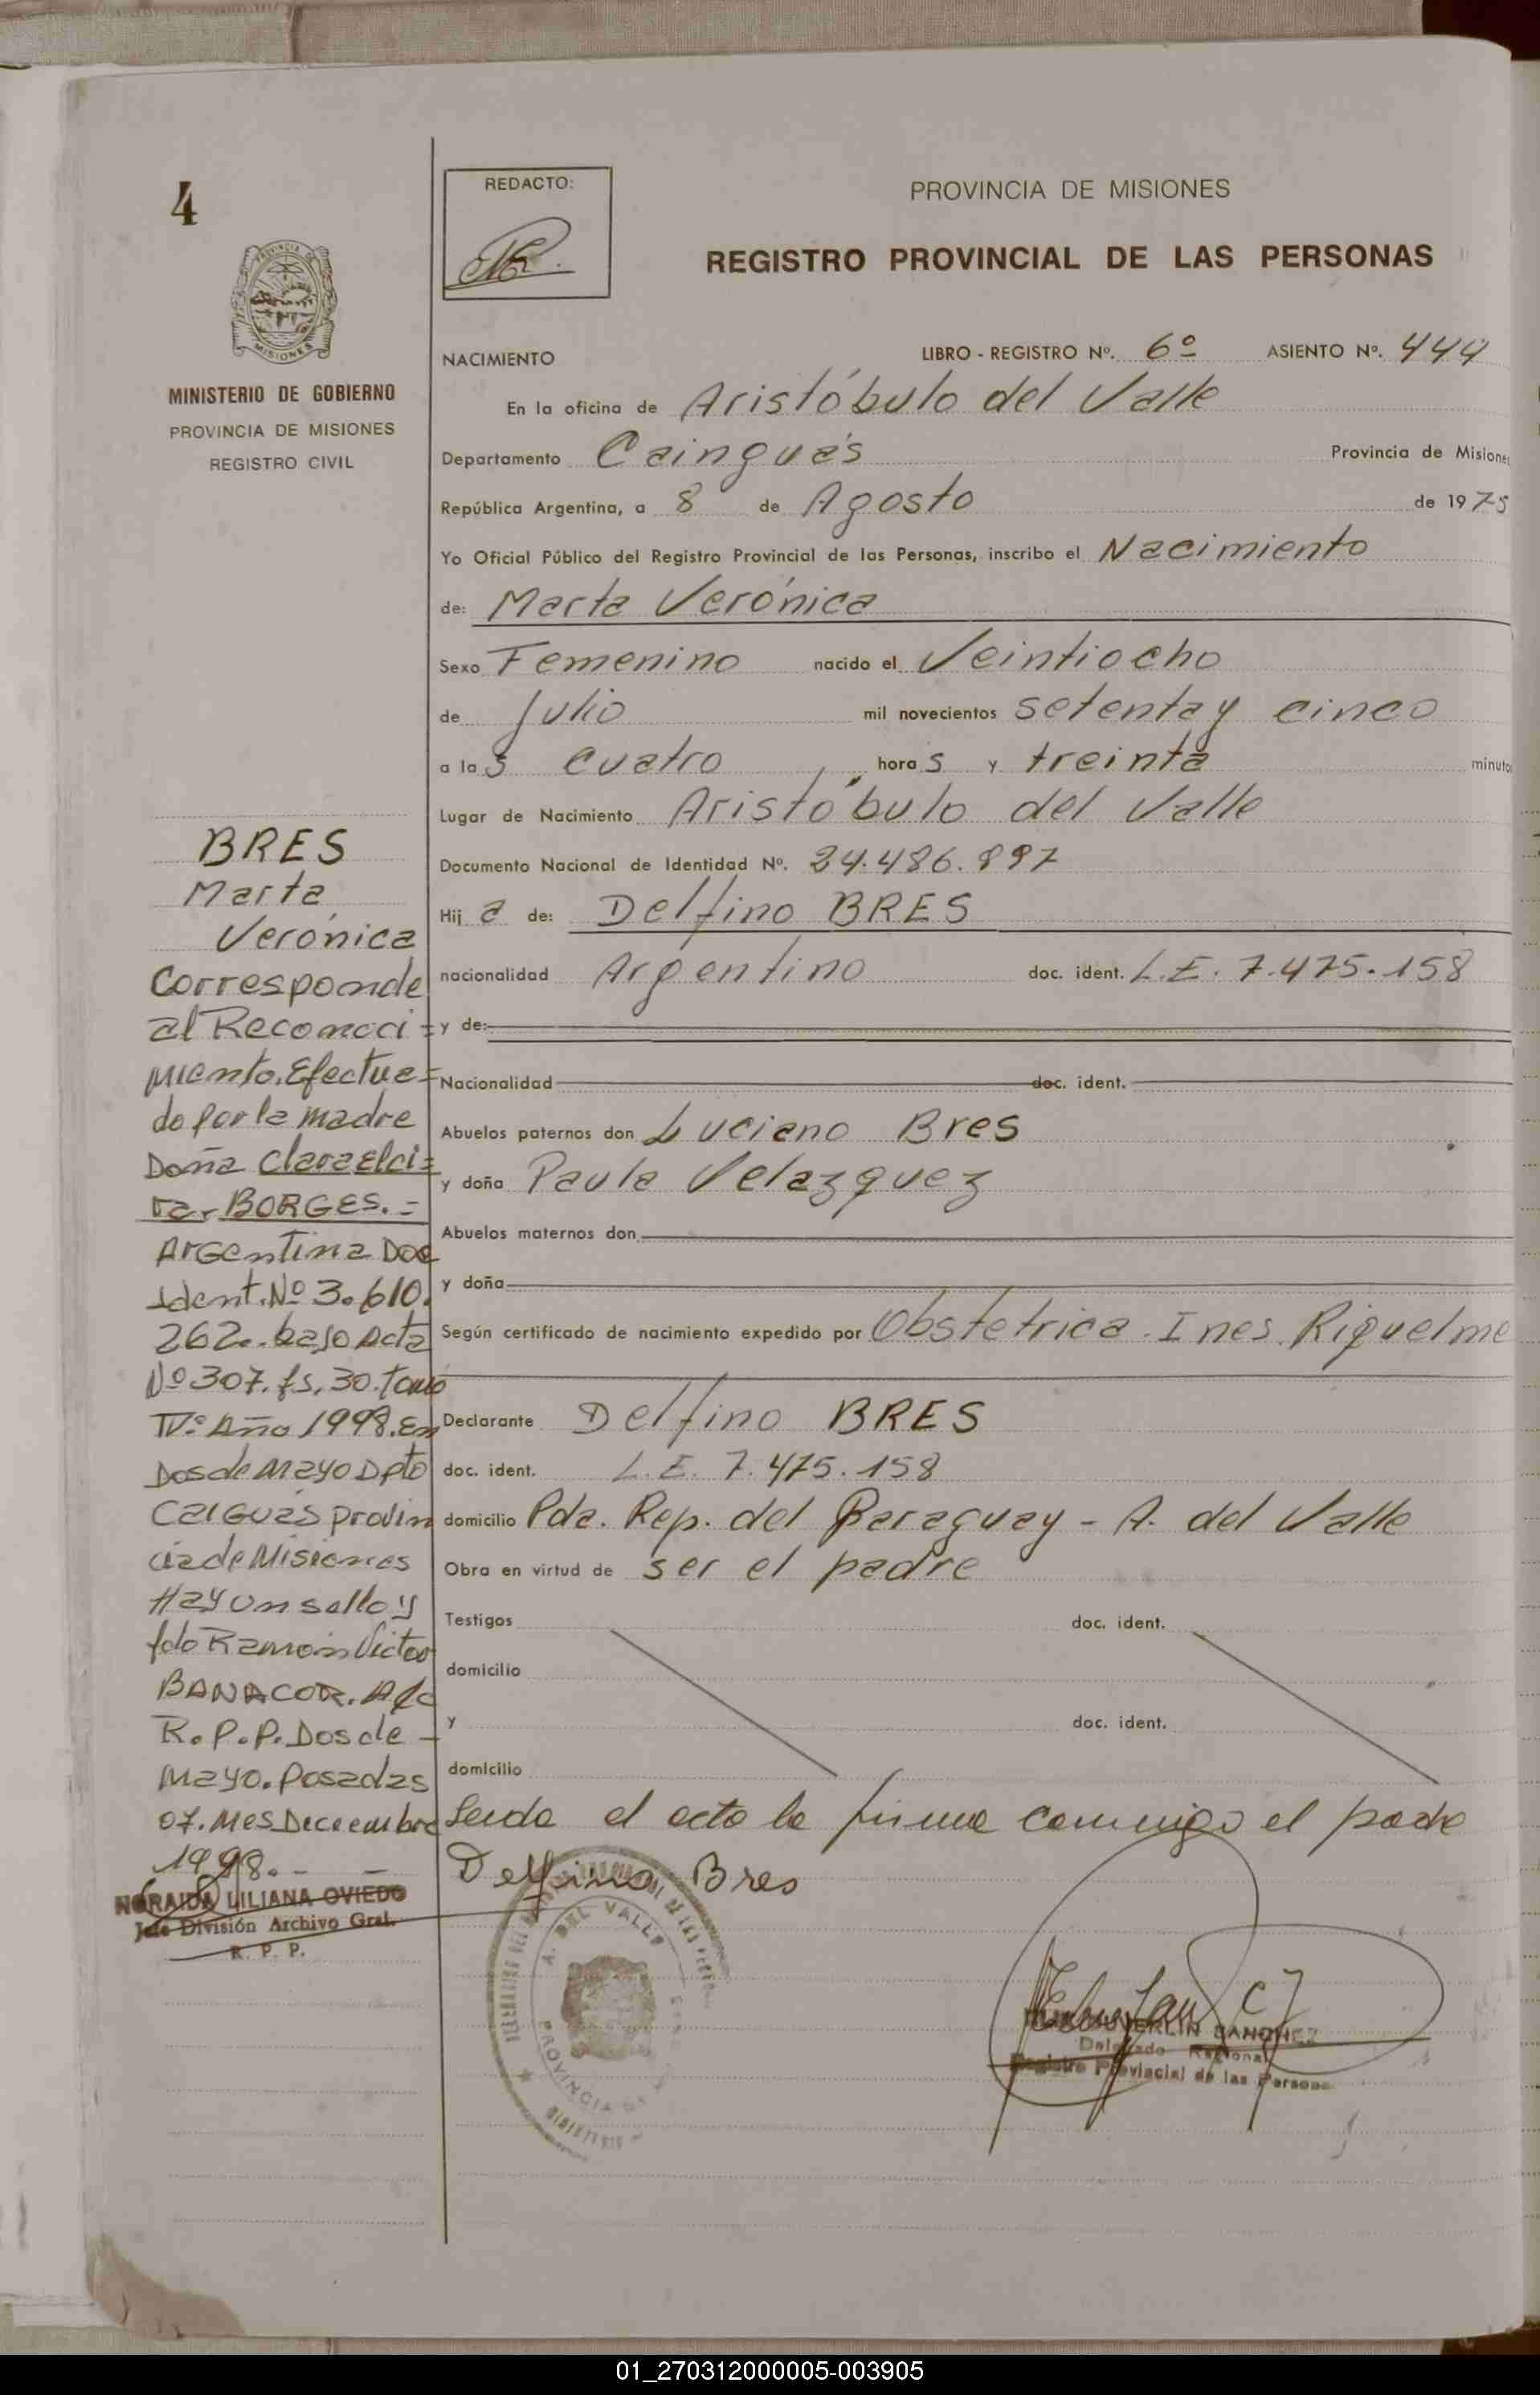 4
PROVINCIA
MISIONES
MINISTERIO DE GOBIERNO
PROVINCIA DE MISIONES
REGISTRO CIVIL
BRES
Marta
Verónica
Corresponde
al Reconoci=
miento. Efectua=
do por la madre
Doña Clara Elci=
ra- BORGES.=
Argentina Doc
Ident. Nº 3.610.
262.. bajo Acta
Nº 307. fs. 30. Tomo
IVº Año 1998. En
Dos de Mayo Dpto
Caiguás provin
cia de Misiones
Hay un sello y
fdo Ramón Victor
BANACOR. A/c
R.P.P. Dos de -
Mayo. Posadas
07. Mes Deciembre
1998.- -
NORAIDA LILIANA OVIEDO
Jefe División Archivo Gral.
R. P. P.
REDACTO:
PROVINCIA DE MISIONES
REGISTRO PROVINCIAL DE LAS PERSONAS
NACIMIENTO LIBRO - REGISTRO Nº. 6º ASIENTO Nº. 444
En la oficina de Aristóbulo del Valle
Departamento Cainguás Provincia de Misiones
República Argentina, a 8 de Agosto de 1975
Yo Oficial Público del Registro Provincial de las Personas, inscribo el Nacimiento
de: Marta Verónica
Sexo Femenino nacido el Veintiocho
de Julio mil novecientos setenta y cinco
a las cuatro horas y treinta minuto
Lugar de Nacimiento Aristóbulo del Valle
Documento Nacional de Identidad Nº. 24.486.897
Hija de: Delfino BRES
nacionalidad Argentino doc. ident. L.E. 7.475.158
y de:
Nacionalidad doc. ident.
Abuelos paternos don Luciano Bres
y doña Paula Velazquez
Abuelos maternos don
y doña
Según certificado de nacimiento expedido por Obstetrica. Ines Riquelme
Declarante Delfino BRES
doc. ident. L.E. 7.475.158
domicilio Pda. Rep. del Paraguay - A. del Valle
Obra en virtud de ser el padre
Testigos doc. ident.
domicilio
y doc. ident.
domicilio
Leida el acta la firma conmigo el padre
Delfino Bres
A. DEL VALLE
PROVINCIA
SANCHEZ
Delegado Regional
Registro Provincial de las Personas
01_270312000005-003905